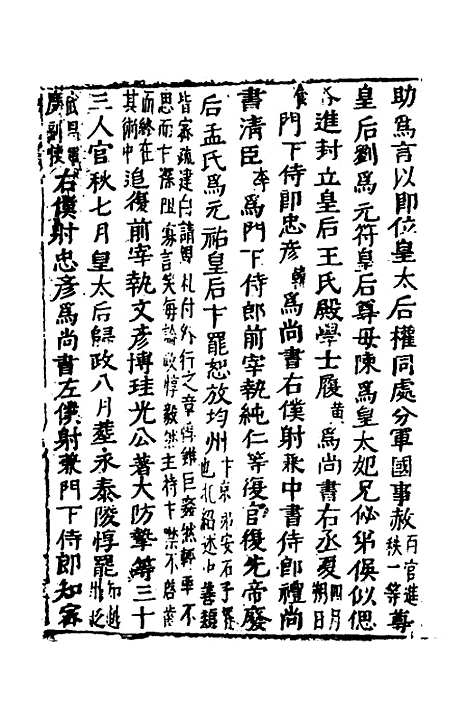 助為言以即位皇太后權同處分軍國事赦百官進秩一等尊
皇后劉為元符皇后尊母陳為皇太妃兄佖弟俁似偲
各進封立皇后王氏殿學士履黃為尚書右丞夏四月朔日
食門下侍郎忠彥韓為尚書右僕射兼中書侍郎禮尚
書清臣李為門下侍郎前宰執純仁等復官復先帝廢
后孟氏為元祐皇后卞罷恕放均州卞京弟安石子壻也扎紹述小善類
皆密疏建白請即札付外行之章惇雖巨姦然輕率不
思而卞深阻寡言笑每論政惇毅然主持卞禁不啓齒
而終在其術中追復前宰執文彥博珪光公著大防摯等三十
三人官秋七月皇太后歸政八月塟永泰陵惇罷知越
右僕射忠彥為尚書左僕射兼門下侍郎知密